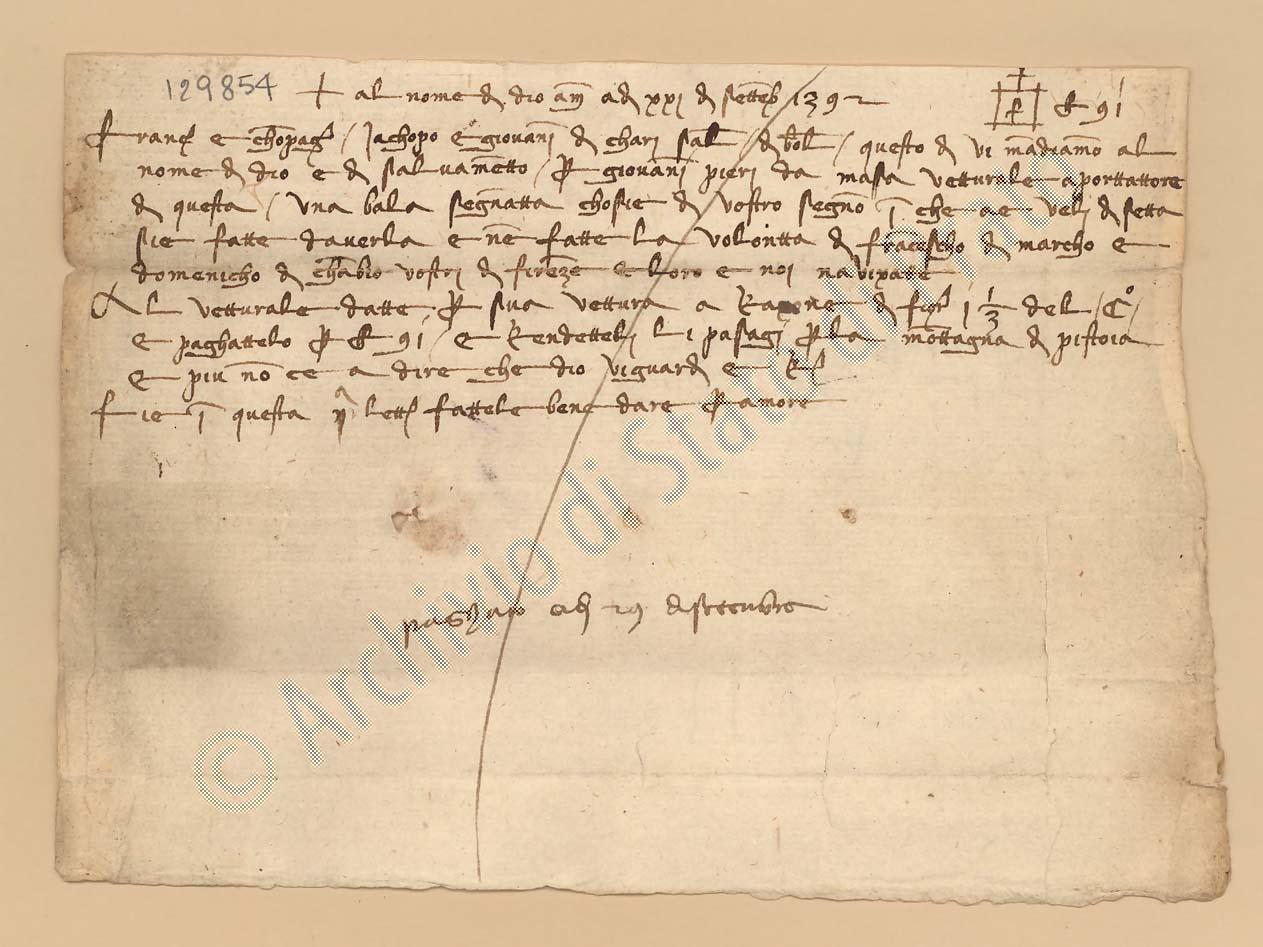 129854
+ al nome di dio am adi xxi di settēb 1392 ₶ 91
Franc e chōpag / Jachopo e giovani di chari sal di bol / questo di vi mādiamo al
nome di dio e di salvamētto / p giovani pieri da masa vetturale aporttattore
di questa / una bala segnatta chosie di vostro segno ī che ae veli di setta
sie fatte daverla e nē fatte la volontta di frācescho di marcho e
domenicho di chābio vostri di firēze e loro e noi navixate
Al vetturale datte p sua vettura a Raxone di fior 1 1/3 del Cº
e paghattelo p ₶ 91 / e Rendetteli li pasagi p la mōttagna di pistoia
E piu nō ce a dire che dio viguardi e
fie ī questa lett fattele bene dare p amore
paghato adi 29 di settenbre
© Archivio di Stato di